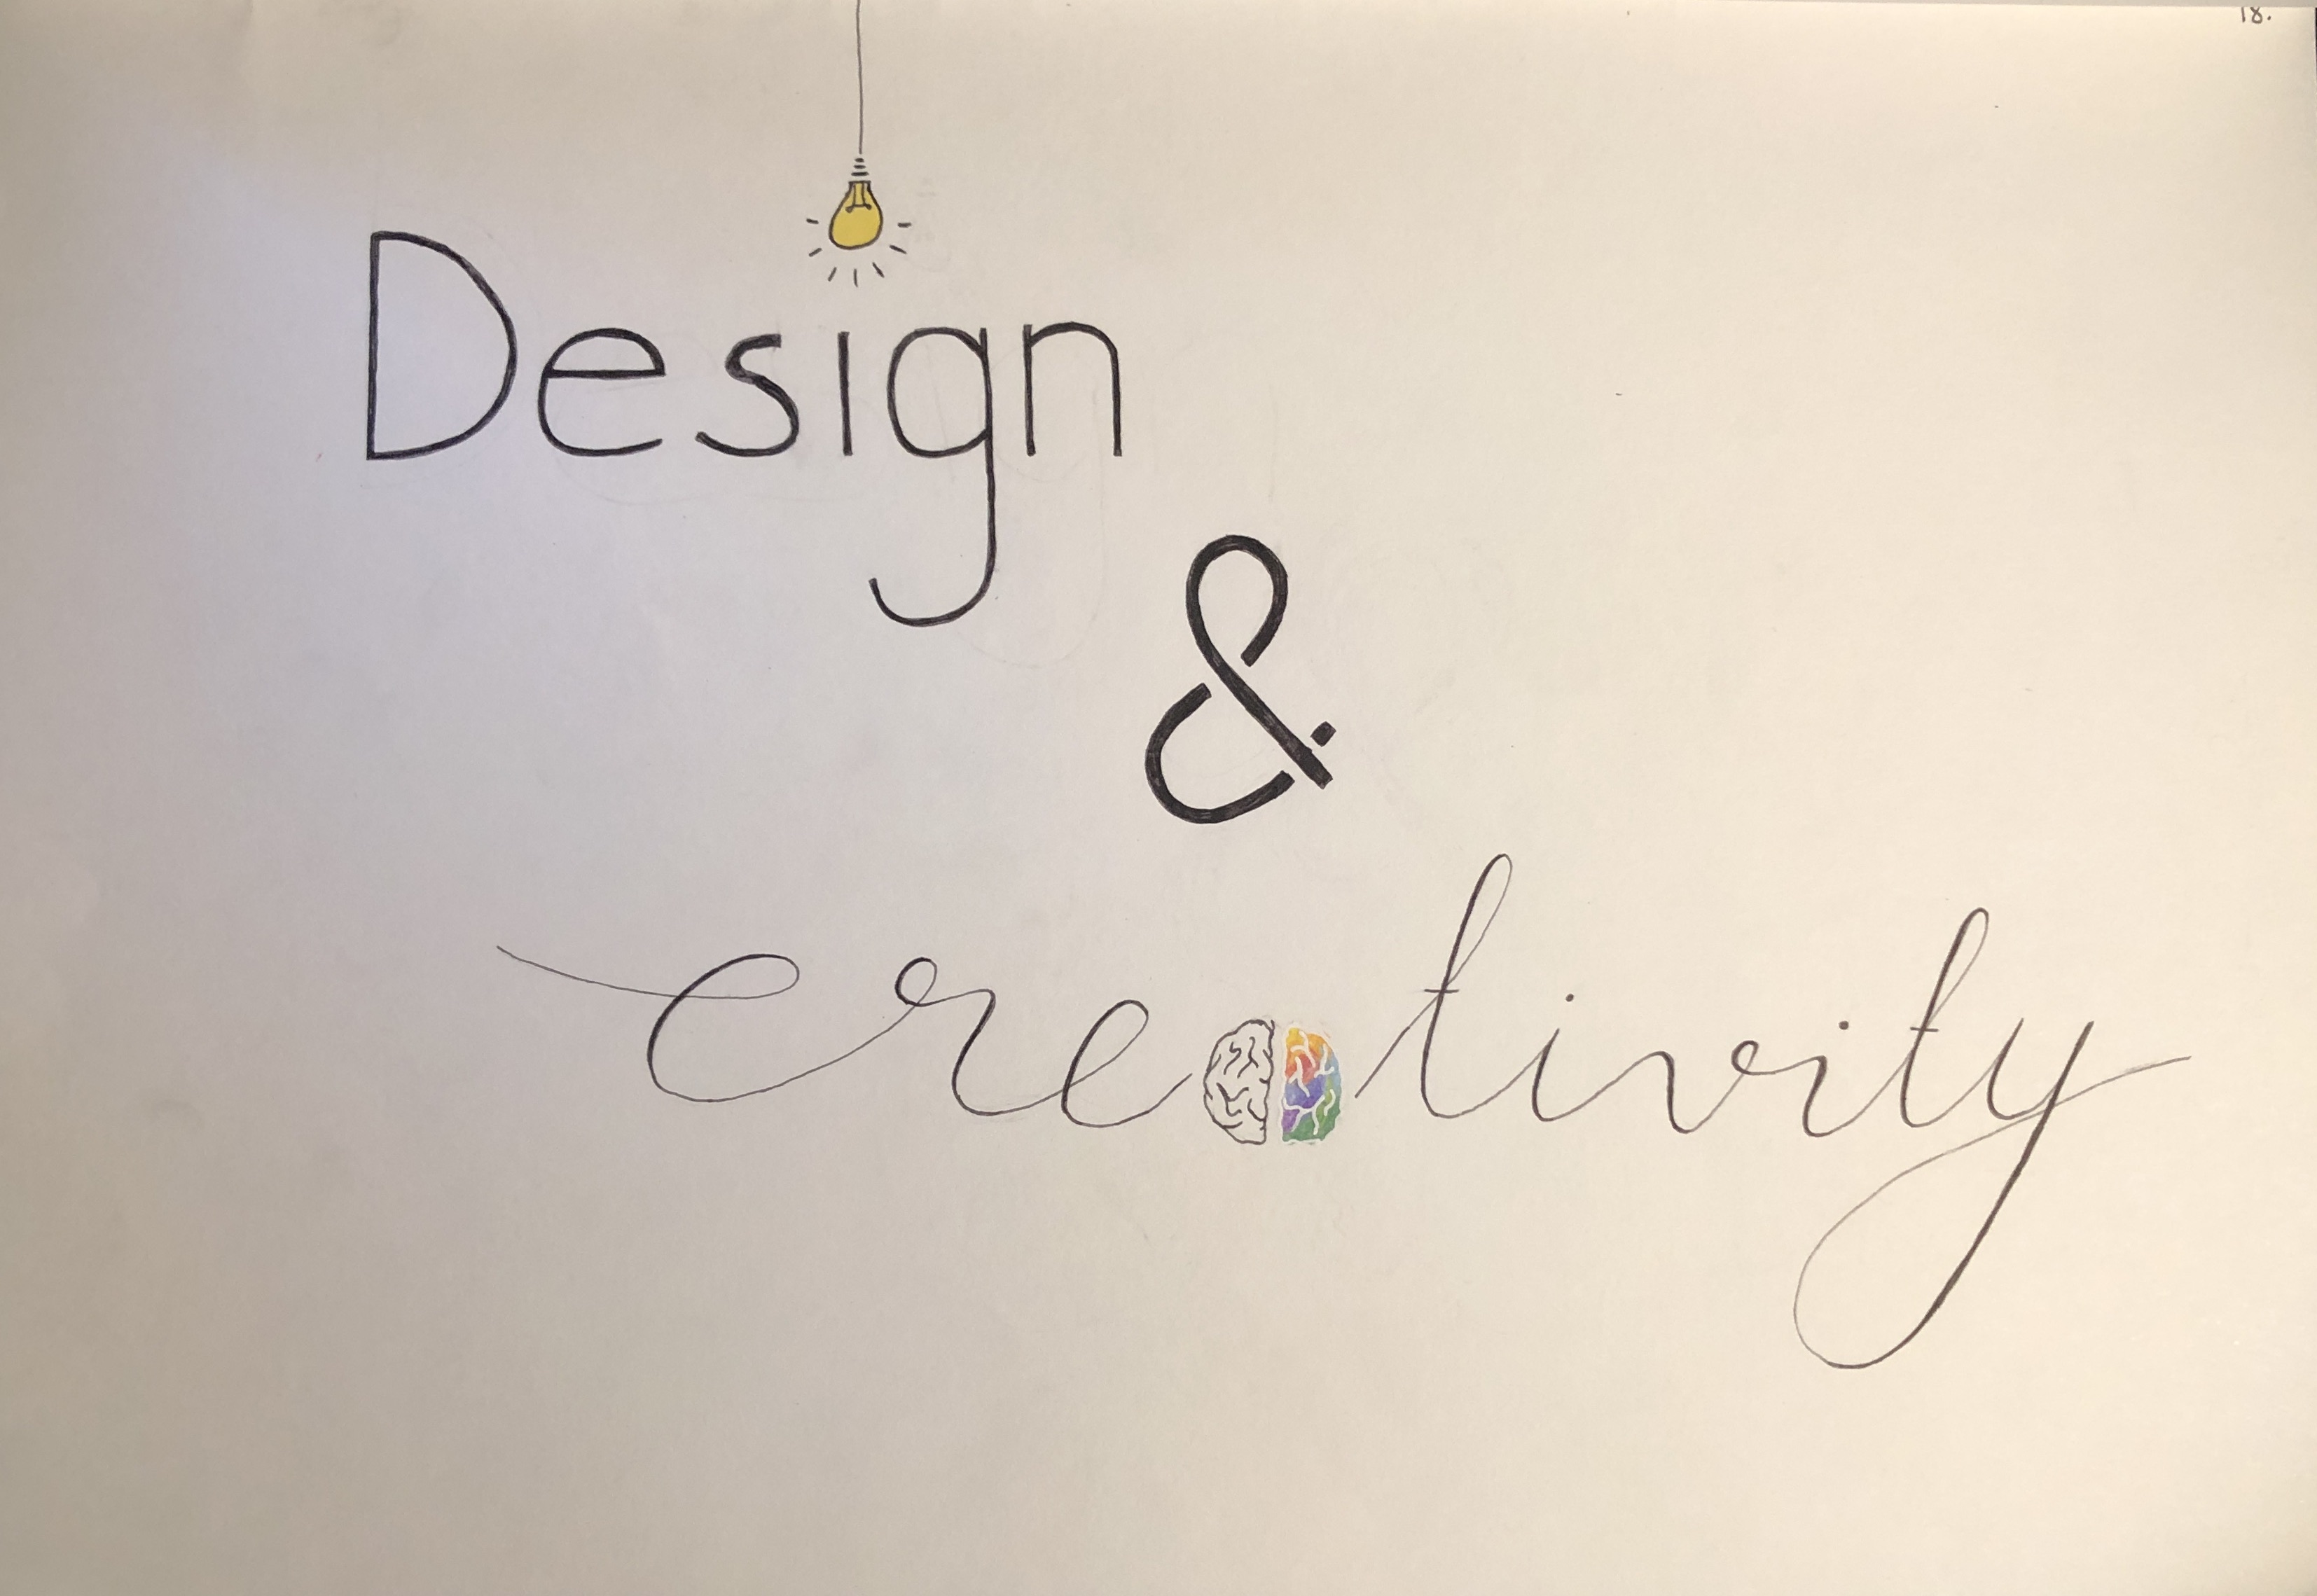 18.
Design
&
creativity